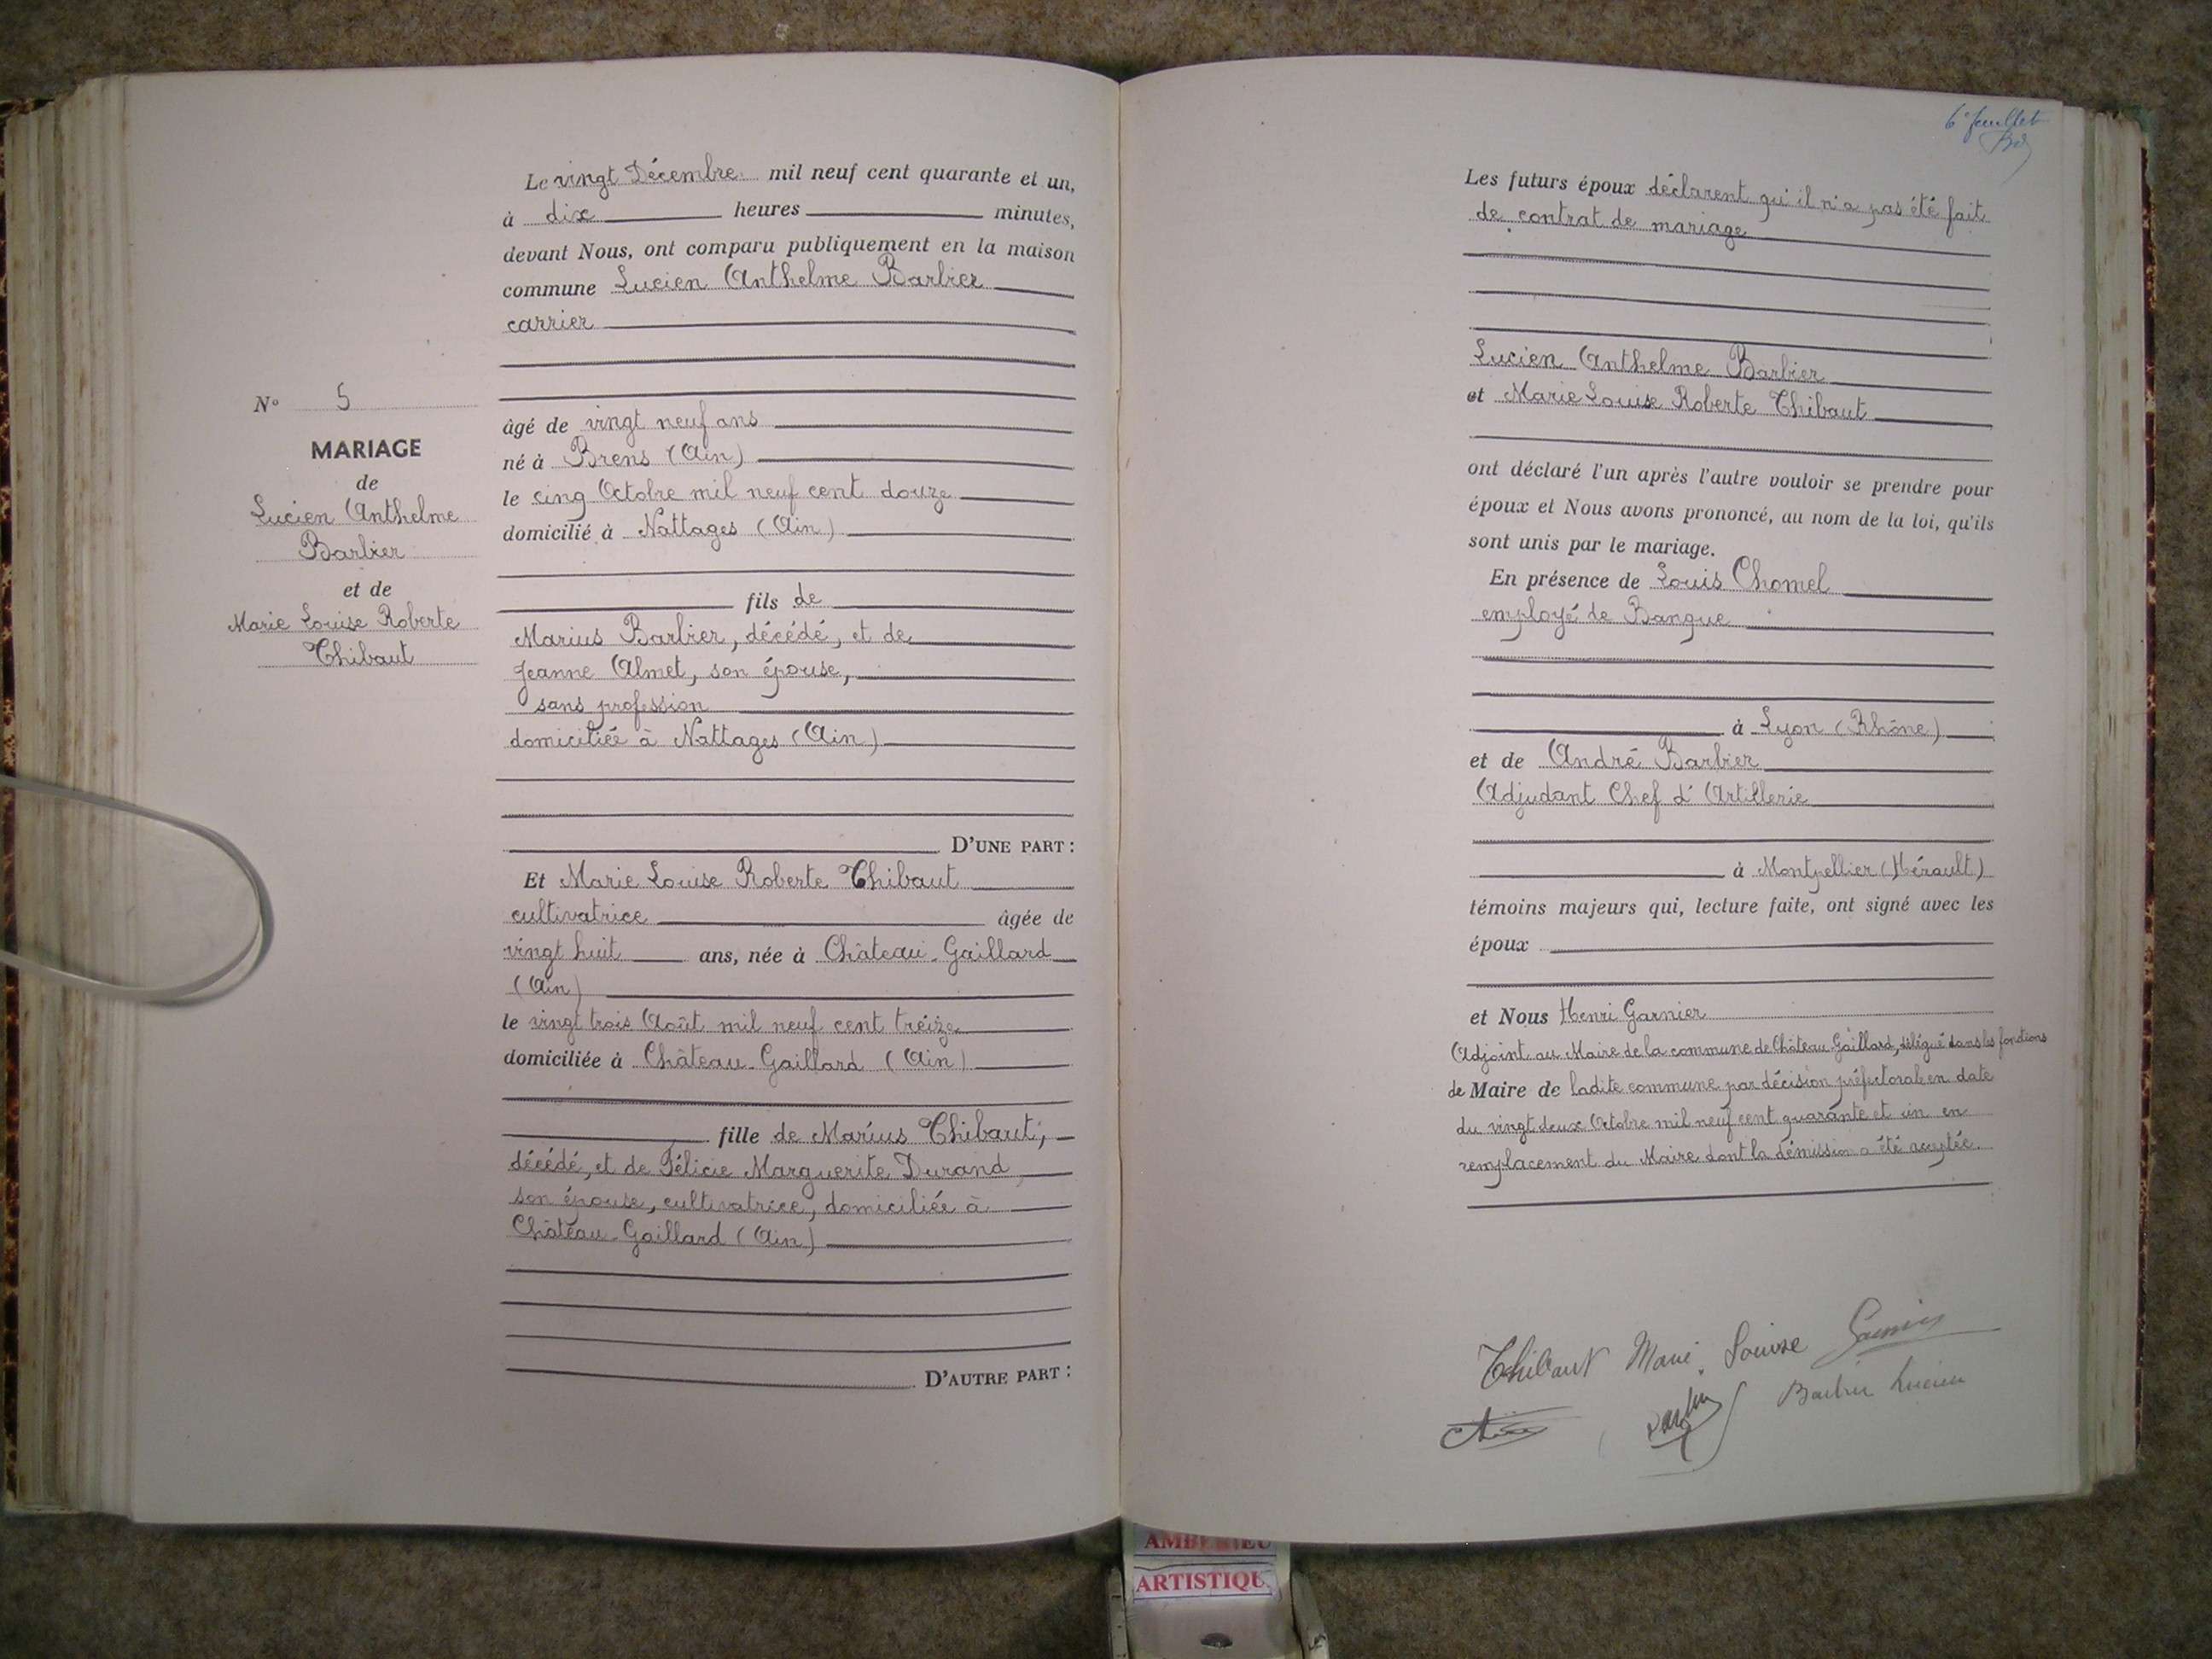 N° 5
MARIAGE
de
Lucien Anthelme
Barbier
et de
Marie Louise Roberte
Thibaut
Le vingt Décembre mil neuf cent quarante et un,
à dix heures minutes,
devant Nous, ont comparu publiquement en la maison
commune Lucien Anthelme Barbier
carrier
âgé de vingt neuf ans
né à Brens (Ain)
le cinq Octobre mil neuf cent douze
domicilié à Nattages (Ain)
fils de
Marius Barbier, décédé, et de
Jeanne Almet, son épouse,
sans profession
domiciliée à Nattages (Ain)
D'UNE PART :
Et Marie Louise Roberte Thibaut
cultivatrice âgée de
vingt huit ans, née à Château-Gaillard
(Ain)
le vingt trois Août mil neuf cent treize
domiciliée à Château-Gaillard (Ain)
fille de Marius Thibaut,
décédé, et de Félicie Marguerite Durand
son épouse, cultivatrice, domiciliée à
Château-Gaillard (Ain)
D'AUTRE PART :
6e feuillet
Les futurs époux déclarent qu'il n'a pas été fait
de contrat de mariage
Lucien Anthelme Barbier
et Marie Louise Roberte Thibaut
ont déclaré l'un après l'autre vouloir se prendre pour
époux et Nous avons prononcé, au nom de la loi, qu'ils
sont unis par le mariage.
En présence de Louis Chomel
employé de Banque
à Lyon (Rhône)
et de André Barbier
Adjudant Chef d'Artillerie
à Montpellier (Hérault)
témoins majeurs qui, lecture faite, ont signé avec les
époux
et Nous Henri Garnier
Adjoint au Maire de la commune de Château-Gaillard, délégué dans les fonctions
de Maire de ladite commune par décision préfectorale en date
du vingt deux Octobre mil neuf cent quarante et un en
remplacement du Maire dont la démission a été acceptée.
Thibaut Marie Louise Garnier
Barbier Lucien
AMBERIEU
ARTISTIQUE